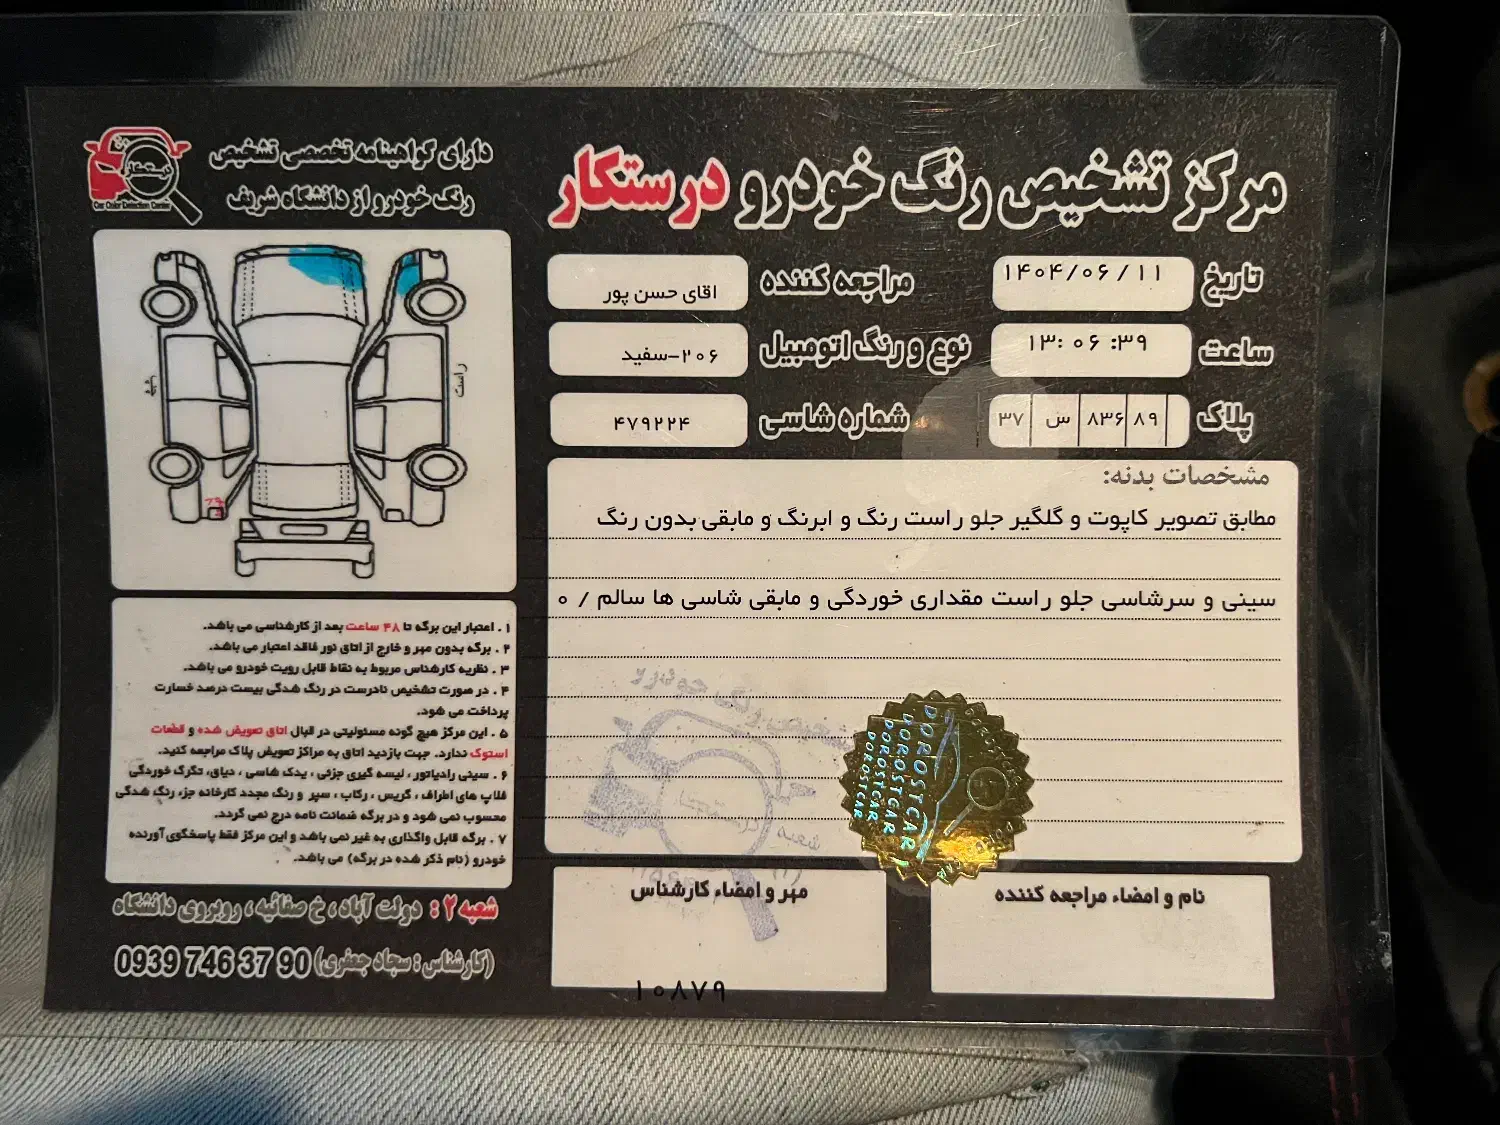 مرکز تشخیص رنگ خودرو درستکار
دارای گواهینامه تخصصی تشخیص
رنگ خودرو از دانشگاه شریف
درستکار
Car Color Detection Center
تاریخ ۱۴۰۴/۰۶/۱۱
مراجعه کننده اقای حسن پور
ساعت ۱۳: ۰۶ :۳۹
نوع و رنگ اتومبیل ۲۰۶-سفید
پلاک ۸۹ ۸۳۶ س ۳۷
شماره شاسی ۴۷۹۲۲۴
مشخصات بدنه:
مطابق تصویر کاپوت و گلگیر جلو راست رنگ و ابرنگ و مابقی بدون رنگ
سینی و سرشاسی جلو راست مقداری خوردگی و مابقی شاسی ها سالم / ۰
تشخیص رنگ خودرو
DOROSTCAR
DOROSTCAR
DOROSTCAR
DOROSTCAR
نام و امضاء مراجعه کننده
مهر و امضاء کارشناس
۱۰۸۷۹
راست
چپ
۱ . اعتبار این برگه تا ۴۸ ساعت بعد از کارشناسی می باشد.
۲ . برگه بدون مهر و خارج از اتاق نور فاقد اعتبار می باشد.
۳ . نظریه کارشناس مربوط به نقاط قابل رویت خودرو می باشد.
۴ . در صورت تشخیص نادرست در رنگ شدگی بیست درصد خسارت
پرداخت می شود.
۵ . این مرکز هیچ گونه مسئولیتی در قبال اتاق تعویض شده و قطعات
استوک ندارد. جهت بازدید اتاق به مراکز تعویض پلاک مراجعه کنید.
۶ . سینی رادیاتور ، لیسه گیری جزئی ، یدک شاسی ، دیاق، تگرگ خوردگی
قلاب های اطراف ، گریس ، رکاب ، سپر و رنگ مجدد کارخانه جزء رنگ شدگی
محسوب نمی شود و در برگه ضمانت نامه درج نمی گردد.
۷ . برگه قابل واگذاری به غیر نمی باشد و این مرکز فقط پاسخگوی آورنده
خودرو (نام ذکر شده در برگه) می باشد.
شعبه ۲ : دولت آباد ، خ صفائیه ، روبروی دانشگاه
(کارشناس : سجاد جعفری) 0939 746 37 90